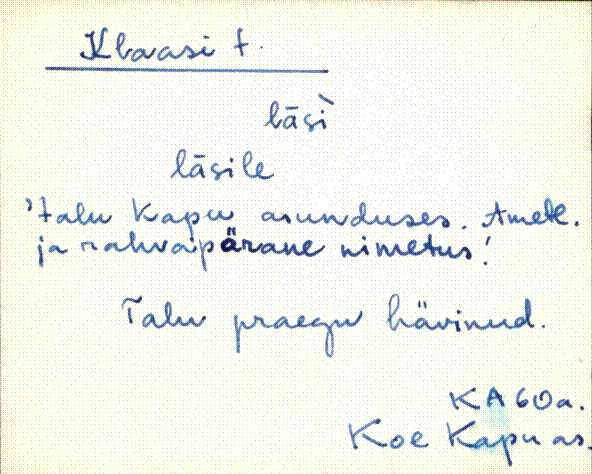 Klaasi t.
läsì
läsile
'talu Kapu asunduses. Ametl.
ja rahvapärane nimetus!
Talu praegu hävinud.
KA 60a.
Koe Kapu as.